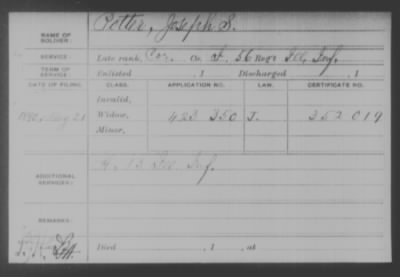 NAME OF SOLDIER: Potter, Joseph S.
SERVICE: Late rank, Co. F, 56 Reg't Ill. Inf.
TERM OF SERVICE: Enlisted , 1 Discharged , 1
DATE OF FILING. CLASS. APPLICATION NO. LAW. CERTIFICATE NO.
Invalid,
1890, Aug 21 Widow, 423 350 J. 352 019
Minor,
ADDITIONAL SERVICES: Ill. Inf.
REMARKS:
Died , 1 , at